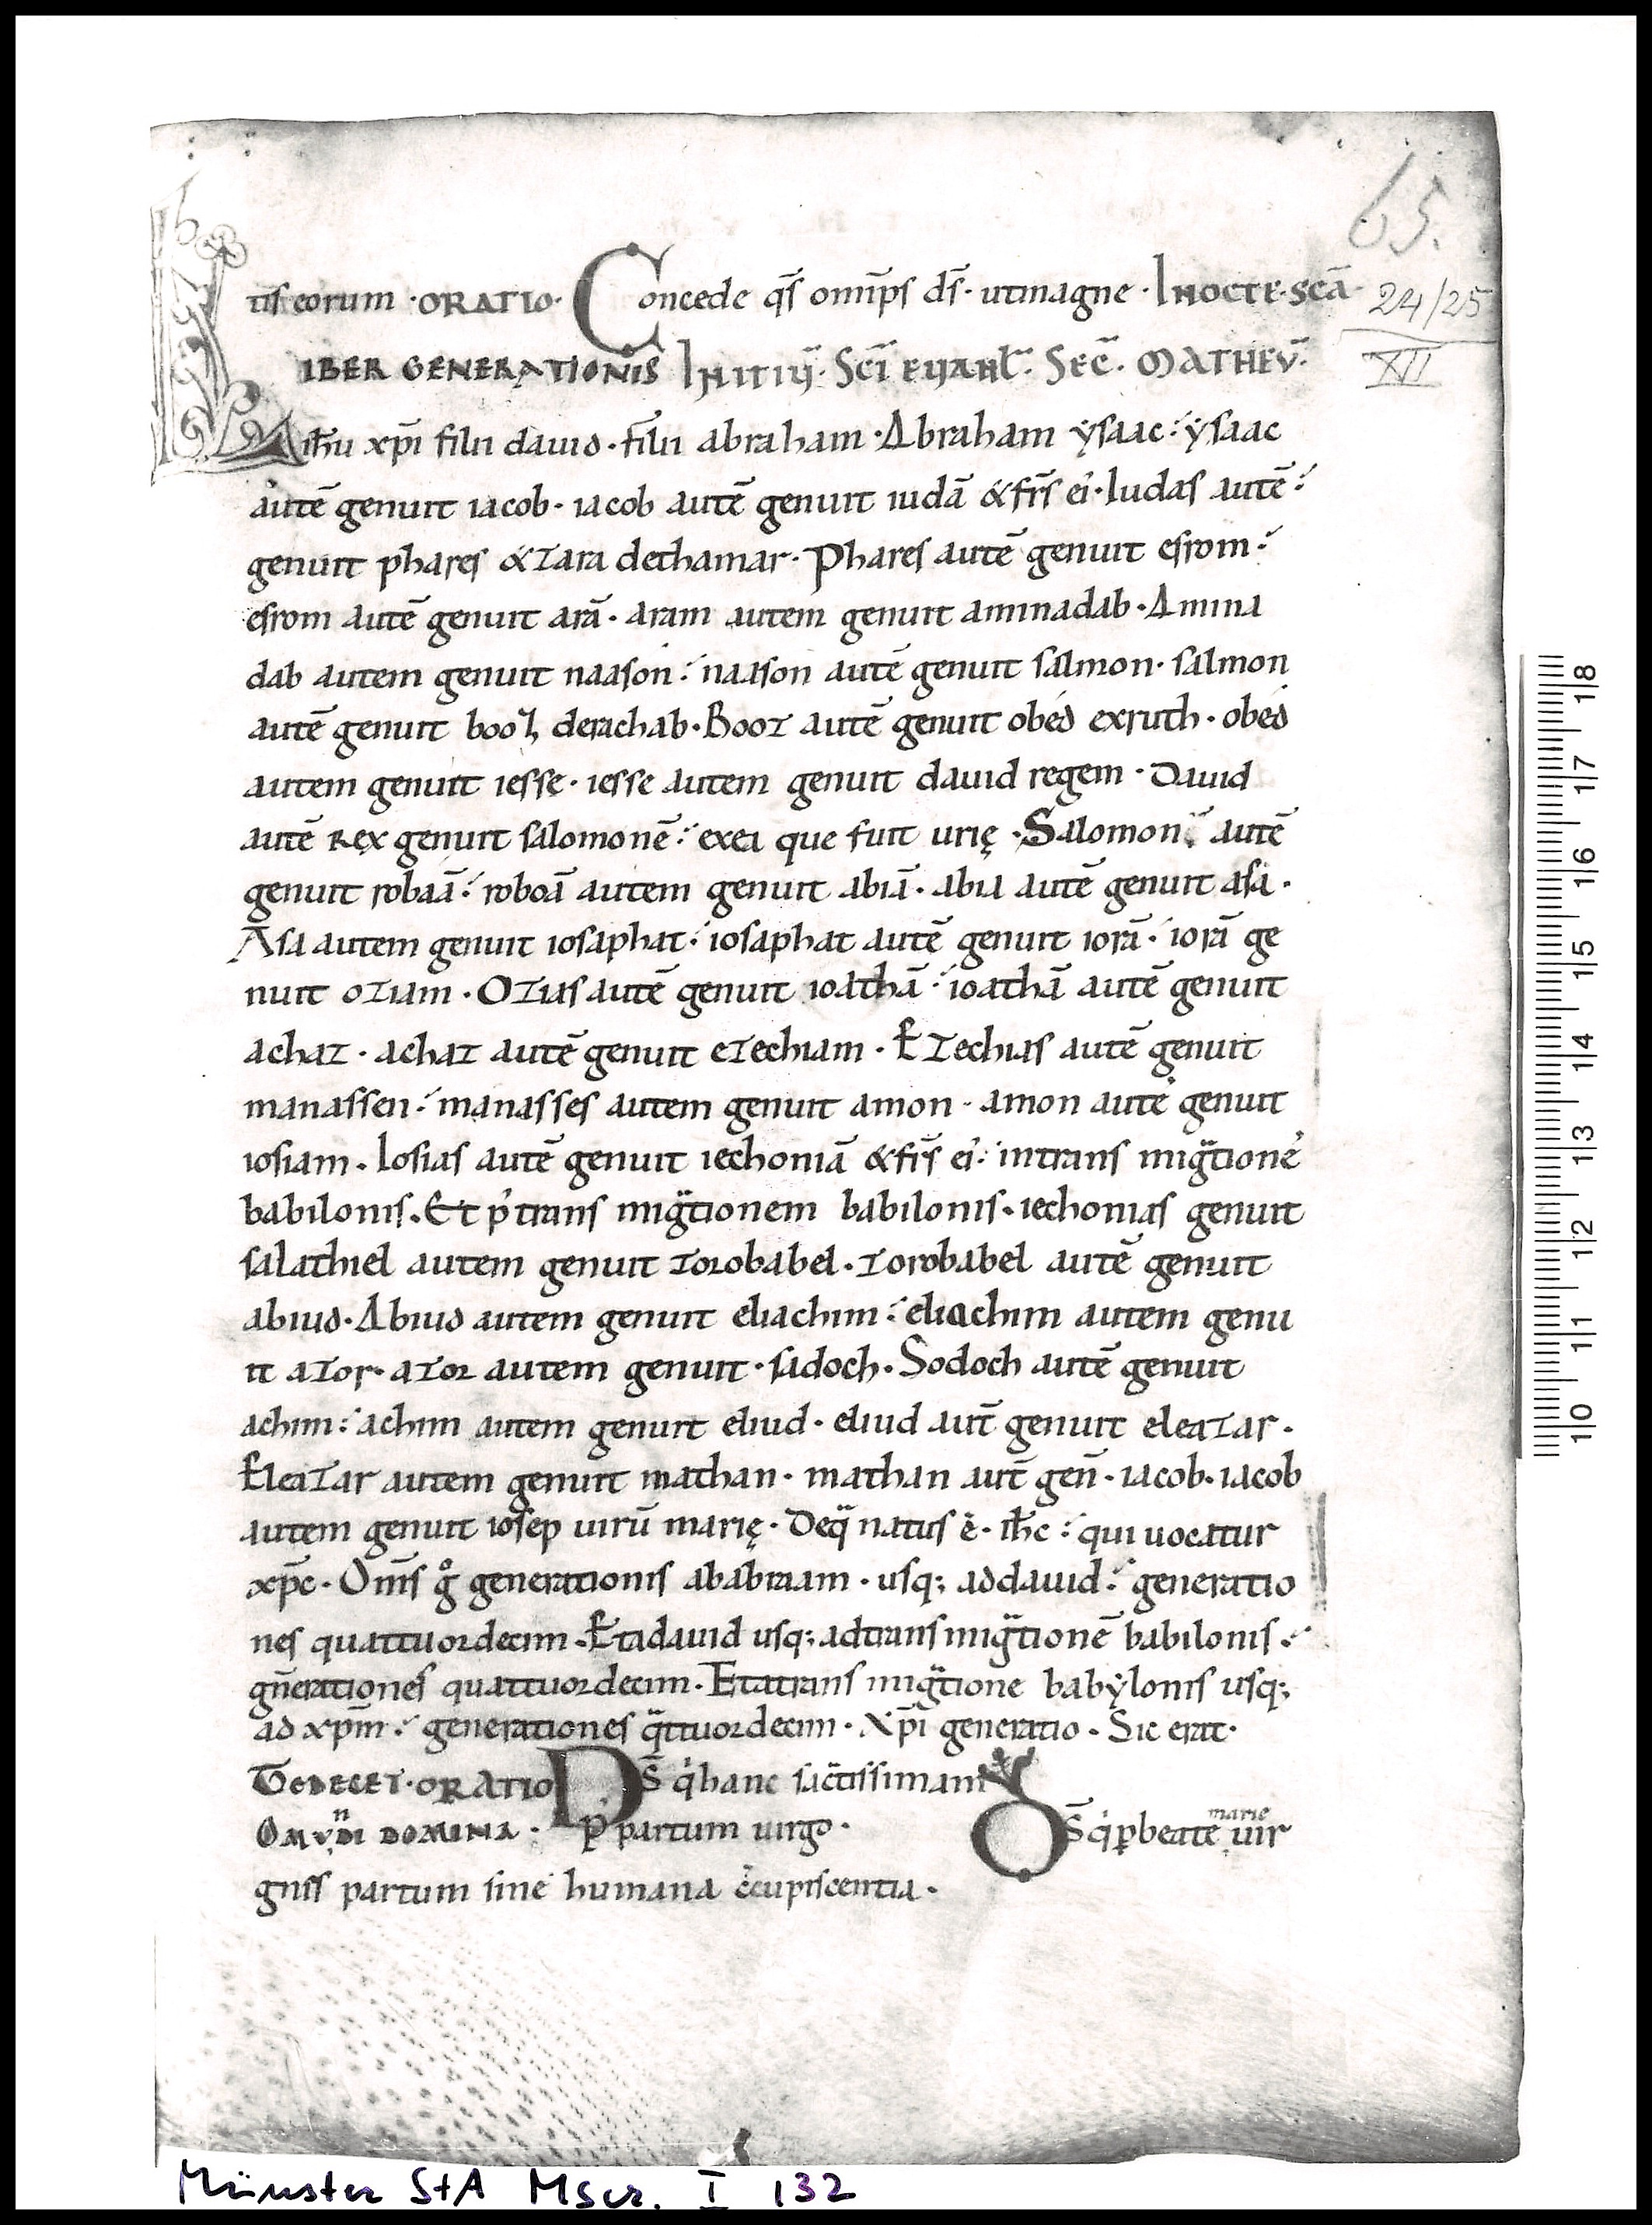 65.
tis eorum · ORATIO · Concede qs̄ omīps ds̄ · utmagne · INOCTE · SCĀ
24/25
XII
LIBER GENERATIONIS INITIŪ · SCĪ EUANGL̄ · SEC̄ · MATHEV̄ ·
ih̄u xp̄i filii dauid · filii abraham · Abraham ẏsaac : ẏsaac
autē genuit iacob · iacob autē genuit iudā &fr̄s ei' · Iudas autē :
genuit phares &zara dethamar · Phares autē genuit esrom :
esrom autē genuit arā · aram autem genuit aminadab · Amina
dab autem genuit naason : naason autē genuit salmon · salmon
autē genuit booz derachab · Booz autē genuit obed exruth · obed
autem genuit iesse · iesse autem genuit dauid regem · Dauid
autē Rex genuit salomonē : exea que fuit urię · Salomon autē
genuit robaā : roboā autem genuit abiā · abia autē genuit asa ·
Asa autem genuit iosaphat : iosaphat autē genuit iorā · iorā ge
nuit oziam · Ozias autē genuit ioathā : ioathā autē genuit
achaz · achaz autē genuit ezechiam · Ezechias autē genuit
manassen : manasses autem genuit amon · amon autē genuit
iosiam · Iosias autē genuit iechoniā &fr̄s ei' : intrans migᵃtionē
babilonis · Et p' trans migᵃtionem babilonis · iechonias genuit
salathiel autem genuit zorobabel · zorobabel autē genuit
abiud · Abiud autem genuit eliachim : eliachim autem genu
it azor · azor autem genuit · sadoch · Sodoch autē genuit
achim : achim autem genuit eliud · eliud aut̄ genuit eleazar ·
Eleazar autem genuit mathan · mathan aut̄ gen̄ · iacob · iacob
autem genuit iosep uirū marię · Deqᵃ natus ē · ih̄c : qui uocatur
xp̄c · Om̄s gᵒ generationis ababraam · usq; addauid : generatio
nes quattuordecim · Etadauid usq; adtransmigᵃtionē babilonis :
gn̄erationes quattuordecim · Etatrans migᵃtione babẏlonis usq;
ad xp̄m : generationes qᵃttuordecim · Xp̄i generatio · Sic erat ·
TEDECET · ORATIO Ds̄ qⁱhanc sac̄tissimam
O MUNDI DOMINA · P' partum uirgo · Ds̄ qⁱ pbeatē marie uir
gnis partum sine humana c̄cupiscentia ·
10 11 12 13 14 15 16 17 18
Münster StA Mscr. I 132